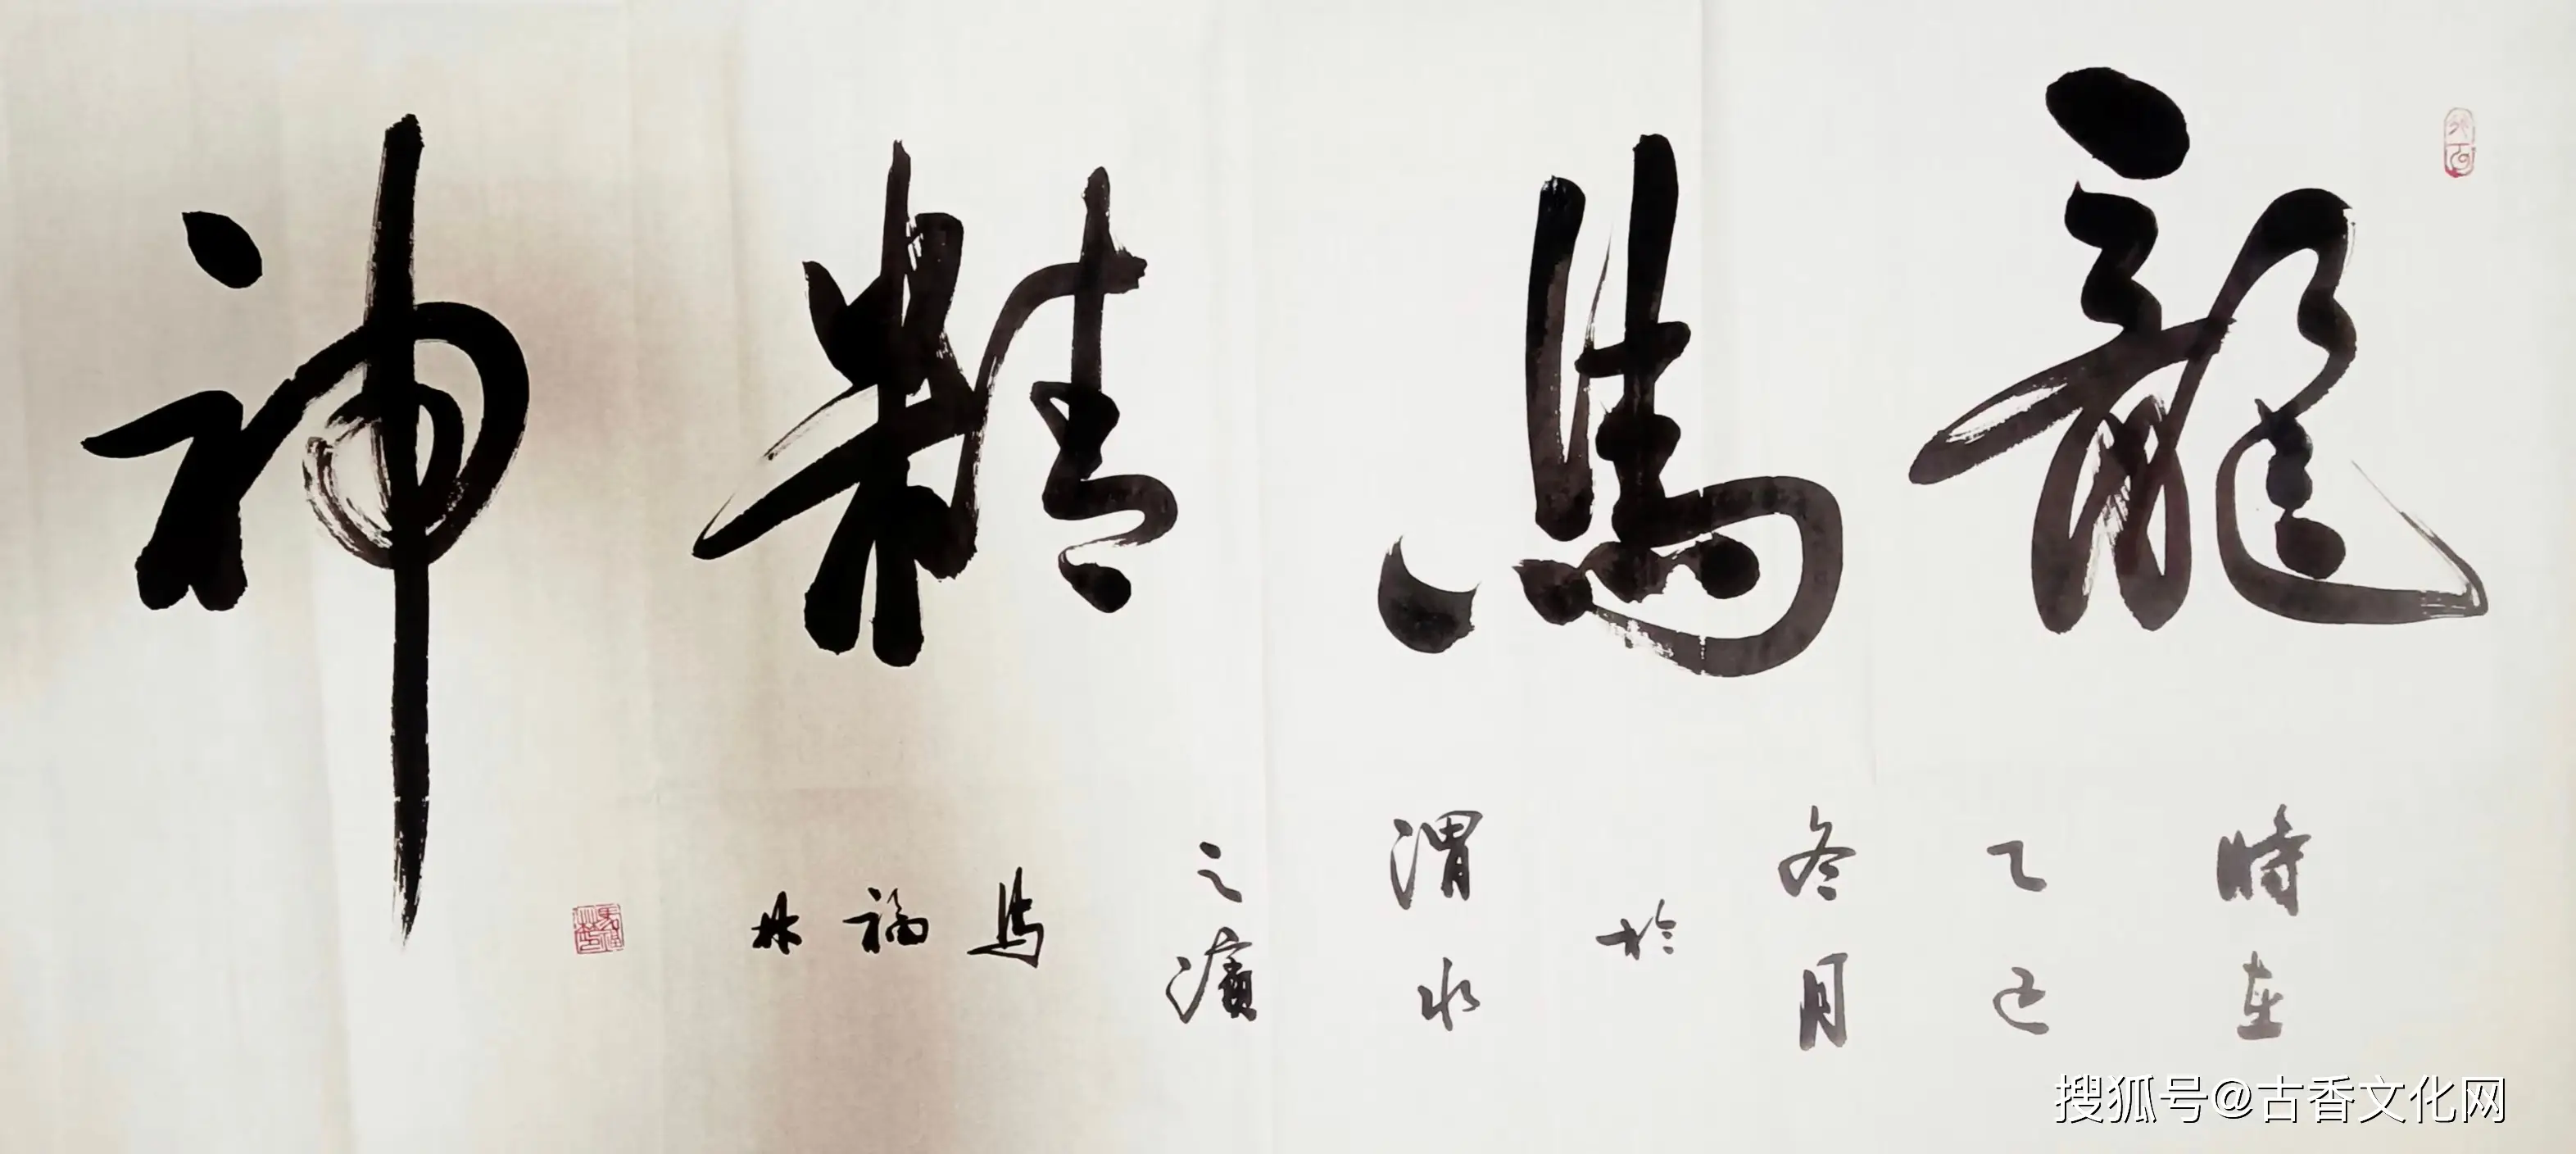 龍馬精神
時在
乙巳
冬月
於
渭水
之濱
馬福林
馬福林
搜狐号@古香文化网